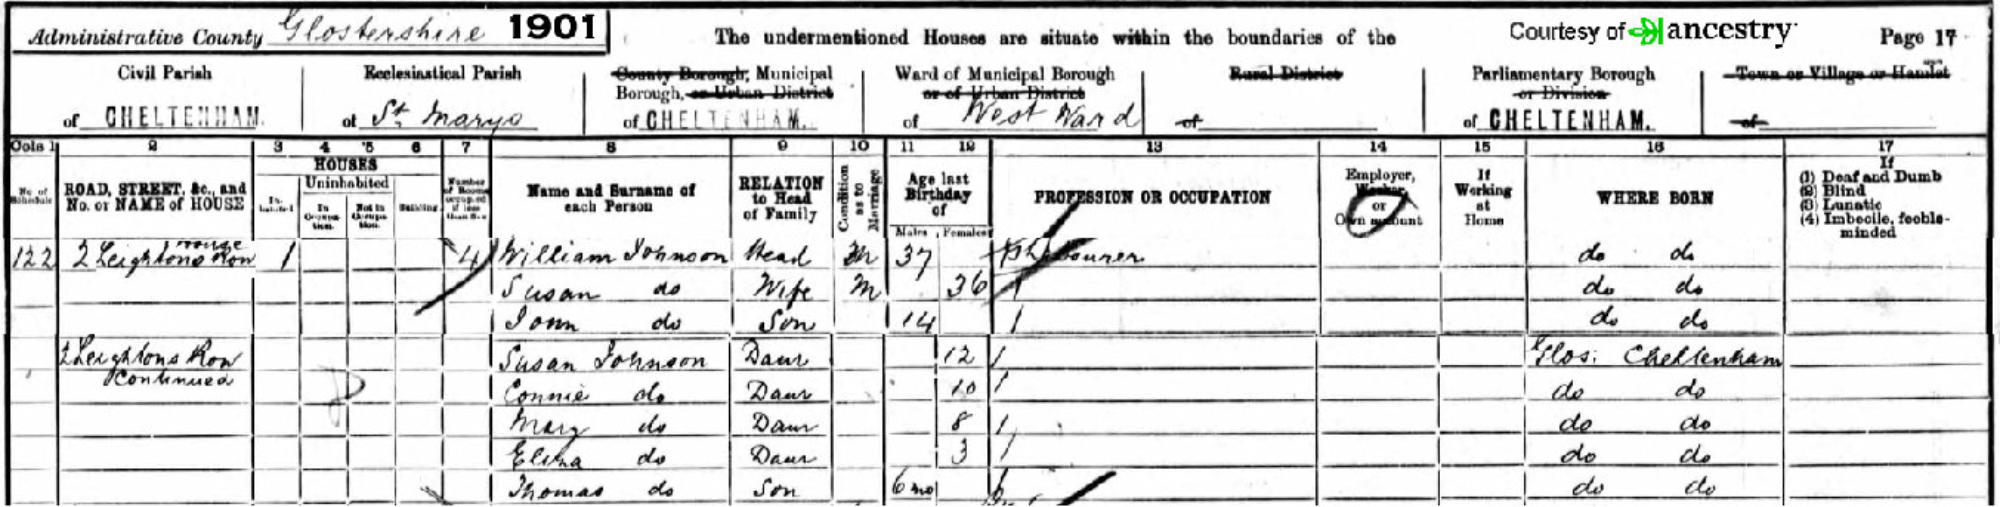 Administrative County Glostershire 1901 The undermentioned Houses are situate within the boundaries of the Courtesy of ancestry Page 17
Civil Parish Ecclesiastical Parish County Borough, Municipal Ward of Municipal Borough Rural District Parliamentary Borough Town or Village or Hamlet
Borough, or Urban District or of Urban District or Division
of CHELTENHAM. of St. Marys of CHELTENHAM. of West Ward of of CHELTENHAM. of
Cols 1 2 3 4 5 6 7 8 9 10 11 12 13 14 15 16 17
No. of Schedule
ROAD, STREET, &c., and No. or NAME of HOUSE
HOUSES
Inhabited
Uninhabited
In Occupation.
Not in Occupation.
Building
Number of Rooms occupied if less than five
Name and Surname of each Person
RELATION to Head of Family
Condition as to Marriage
Age last Birthday of
Males Females
PROFESSION OR OCCUPATION
Employer, Worker, or Own account
If Working at Home
WHERE BORN
If
(1) Deaf and Dumb
(2) Blind
(3) Lunatic
(4) Imbecile, feeble-minded
122 2 Leightons Row 1 4 William Johnson Head M 37 do do
Susan do Wife M 36 do do
John do Son 14 do do
2 Leightons Row Susan Johnson Daur 12 Glos: Cheltenham
Continued Connie do Daur 10 do do
Mary do Daur 8 do do
Eliza do Daur 3 do do
Thomas do Son 6 mo do do